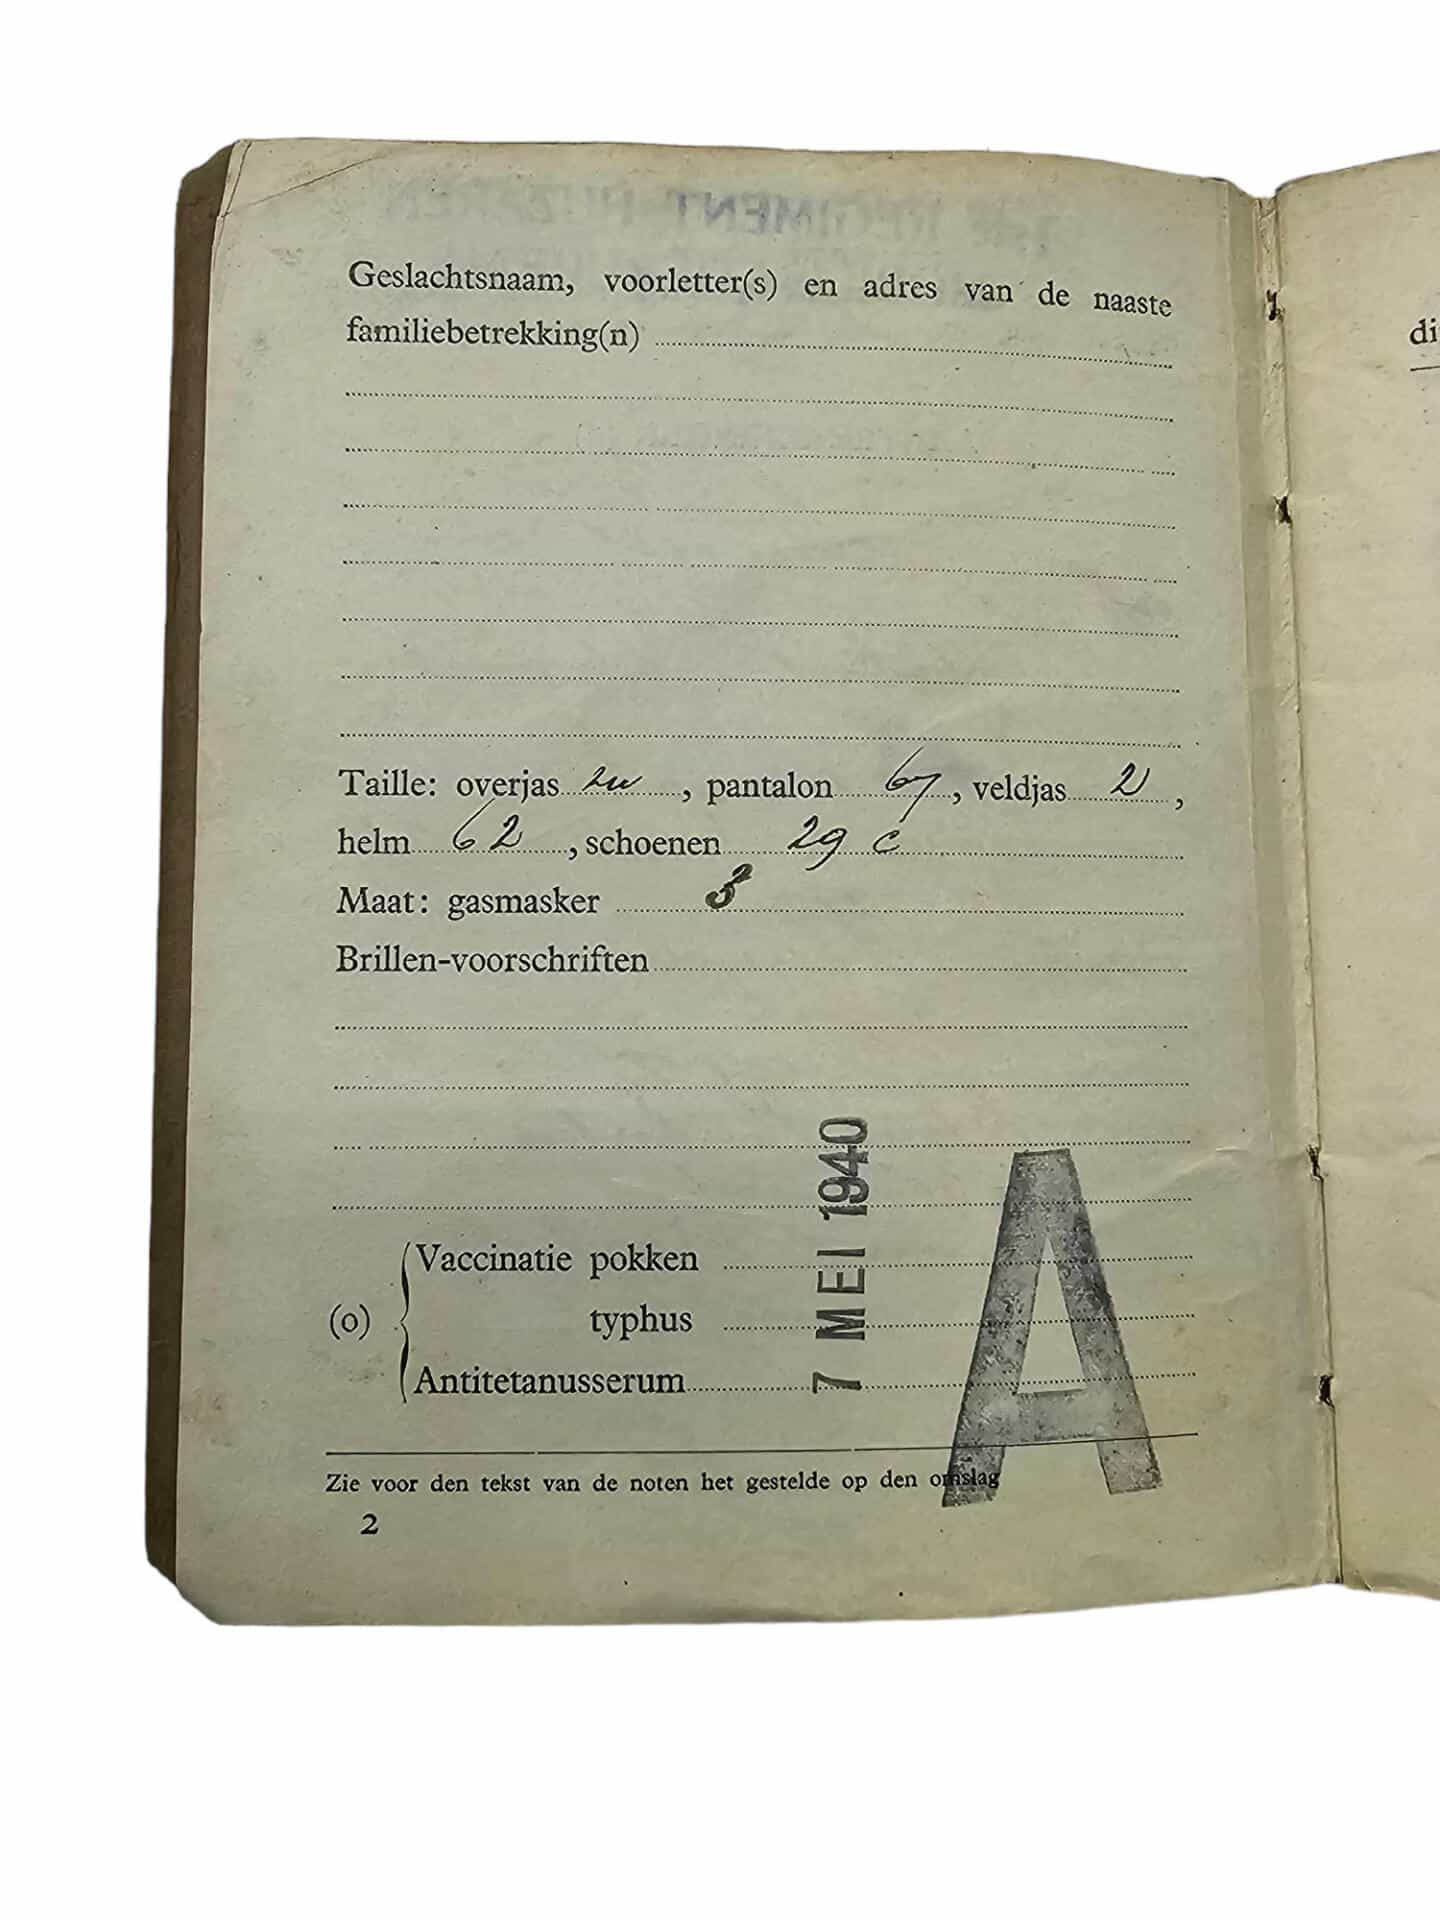 Geslachtsnaam, voorletter(s) en adres van de naaste
familiebetrekking(n)
Taille: overjas , pantalon 67, veldjas 2,
helm 62, schoenen 29 c
Maat: gasmasker 3
Brillen-voorschriften
(o) Vaccinatie pokken
typhus
Antitetanusserum
7 MEI 1940
A
Zie voor den tekst van de noten het gestelde op den omslag
2
di